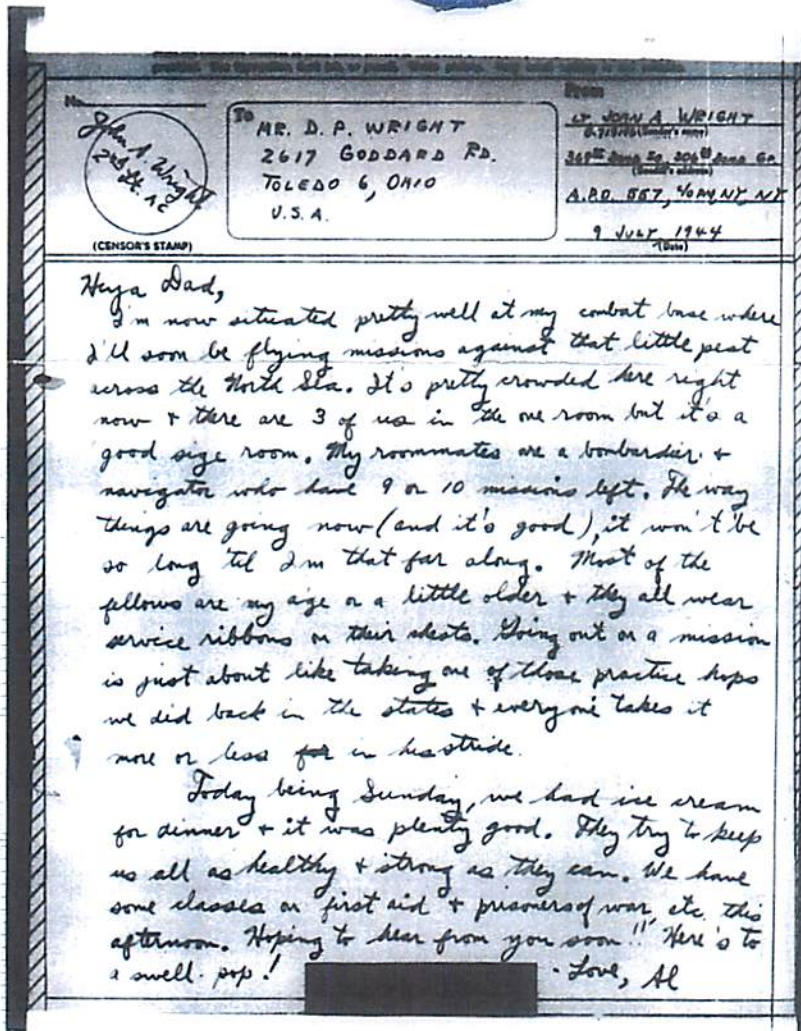 No.
John A. Wright
2nd Lt. AC
(CENSOR'S STAMP)
To
MR. D. P. WRIGHT
2617 GODDARD RD.
TOLEDO 6, OHIO
U.S.A.
From
LT JOHN A WRIGHT
(Sender's name)
(Sender's address)
A.P.O. 557, c/o PM, NY, NY
9 JULY 1944
(Date)
Heya Dad,
I'm now situated pretty well at my combat base where
I'll soon be flying missions against that little pest
across the North Sea. It's pretty crowded here right
now + there are 3 of us in the one room but it's a
good size room. My roommates are a bombardier +
navigator who have 9 or 10 missions left. The way
things are going now (and it's good), it won't be
so long 'til I'm that far along. Most of the
fellows are my age or a little older + they all wear
service ribbons on their chests. Going out on a mission
is just about like taking one of those practice hops
we did back in the states + everyone takes it
more or less for in his stride.
Today being Sunday, we had ice cream
for dinner + it was plenty good. They try to keep
us all as healthy + strong as they can. We have
some classes on first aid + prisoners of war, etc. this
afternoon. Hoping to hear from you soon!! Here's to
a swell pop! - Love, Al